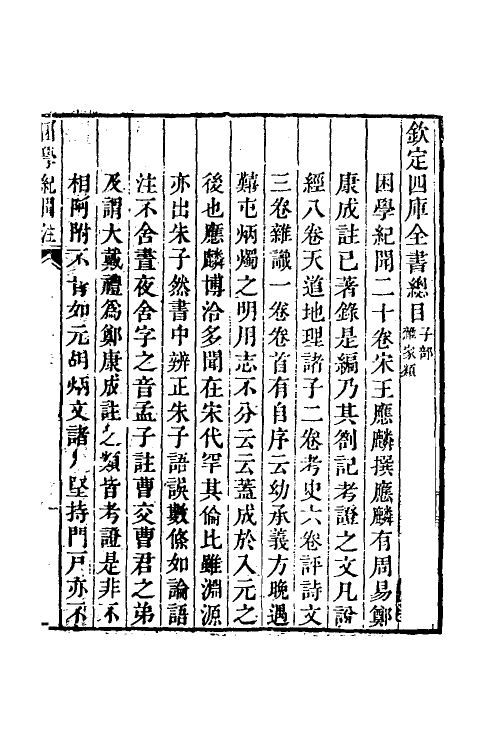 欽定四庫全書總目子部雜家類
困學紀聞二十卷宋王應麟撰應麟有周易鄭
康成註已著錄是編乃其劄記考證之文凡說
經八卷天道地理諸子二卷考史六卷評詩文
三卷雜識一卷卷首有自序云幼承義方晚遇
囏屯炳燭之明用志不分云云蓋成於入元之
後也應麟博洽多聞在宋代罕其倫比雖淵源
亦出朱子然書中辨正朱子語誤數條如論語
注不舍晝夜舍字之音孟子註曹交曹君之弟
及謂大戴禮爲鄭康成註之類皆考證是非不
相阿附不肯如元胡炳文諸人堅持門戸亦不
困學紀聞注